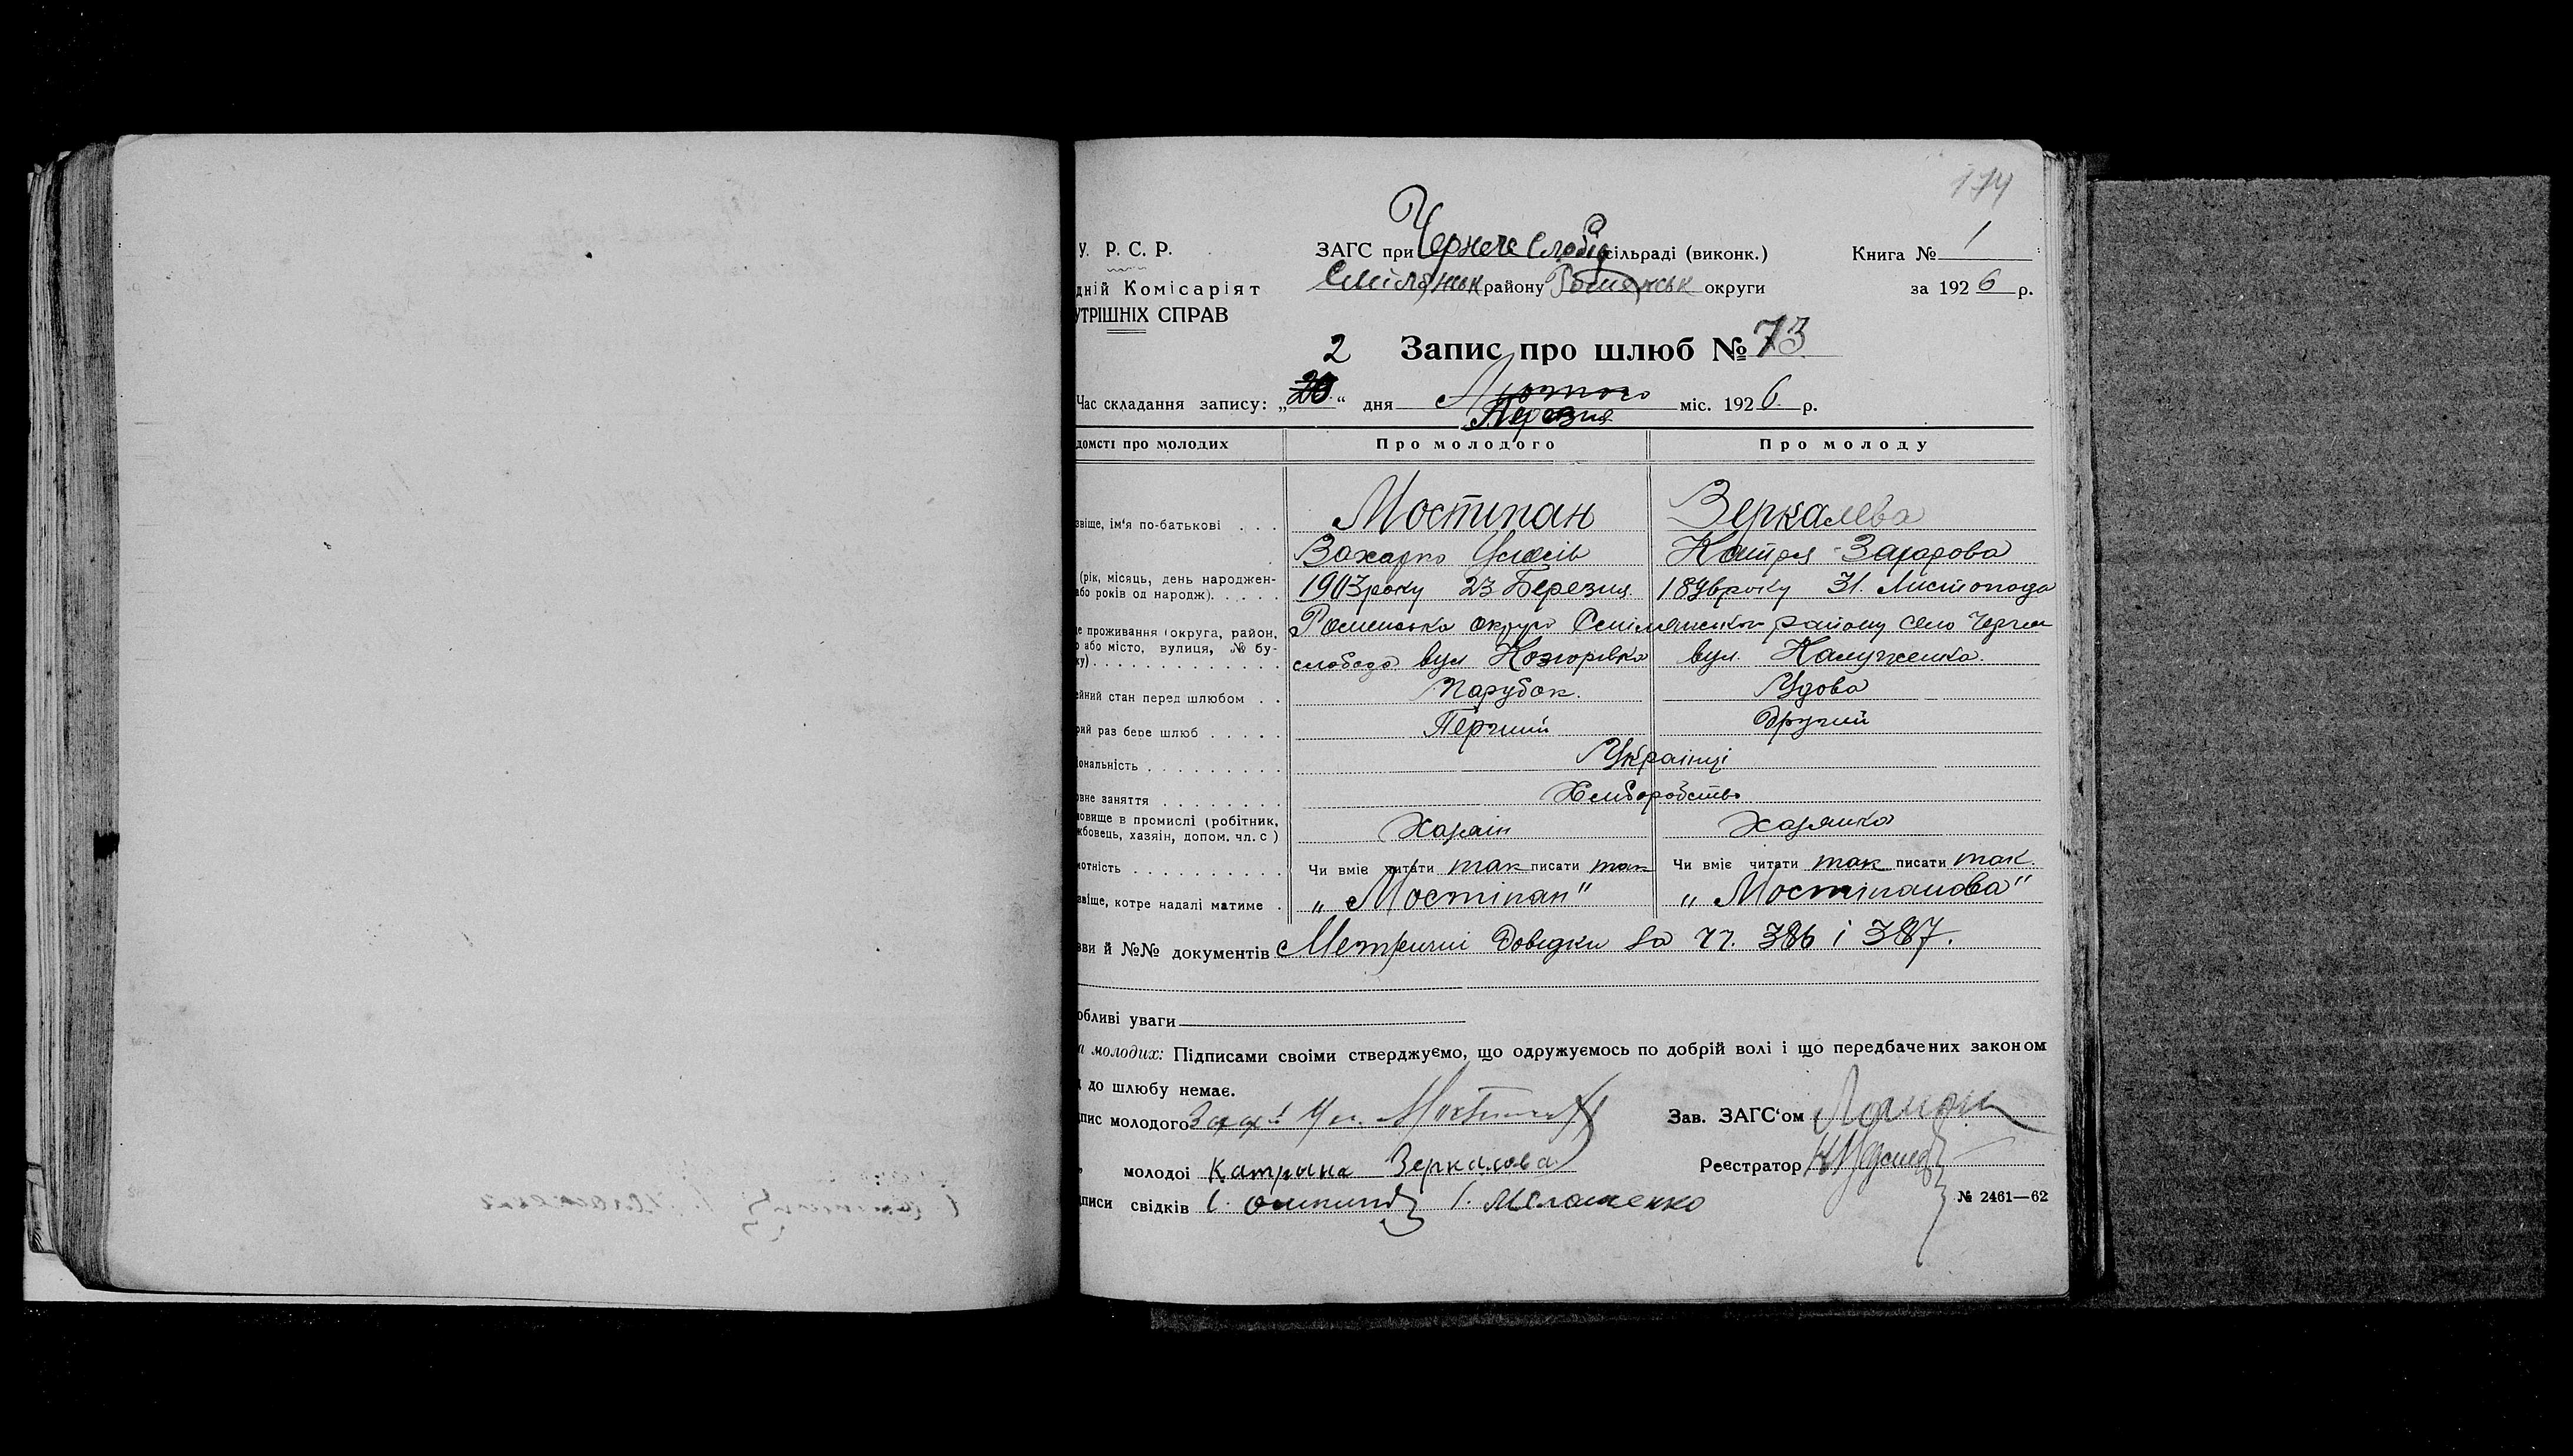 174
У. Р. С. Р.
ЗАГС при Чернече Слобід сільраді (виконк.)
Книга № 1
дній Комісаріят
Смілянськ району Роменськ округи
за 1926 р.
УТРІШНІХ СПРАВ
Запис про шлюб № 73
2
Час складання запису: „20“ дня Лютого міс. 1926 р.
Березня
домсті про молодих Про молодого Про молоду
звіще, ім‘я по-батькові . . . Мостипан Зеркалева
Захарко Катря Захарова
(рік, місяць, день народжен- 1903 року 23 Березня 1896 року 31. Листопада
або років од народж). . . . .
Роменська округа Смілянського району село Чернеча
е проживання (округа, район,
о або місто, вулиця, № бу-
ку) . . . . . . . . . . . . . слобода вул вул.
ейний стан перед шлюбом . . Парубок. Удова
рий раз бере шлюб . . . . . Перший Другий
іональність . . . . . . . . . Українці
овне заняття . . . . . . . . Хлиборобство
новище в промислі (робітник,
жбовець, хазяін, допом. чл. с ) Хазяін Хазяйка
мотність . . . . . . . . . . Чи вміє читати так писати так Чи вміє читати так писати так.
звіще, котре надалі матиме . „Мостіпан" „Мостіпанова"
зви й №№ документів Метричні Довідки за чч. 386 і 387.
обливі уваги
и молодих: Підписами своіми стверджуємо, що одружуємось по добрій волі і що передбачених законом
д до шлюбу немає.
пис молодого
Зав. ЗАГС‘ом
„ молодоі Катрына Зеркалова
Реєстратор
писи свідків І. Меламенко
№ 2461—62